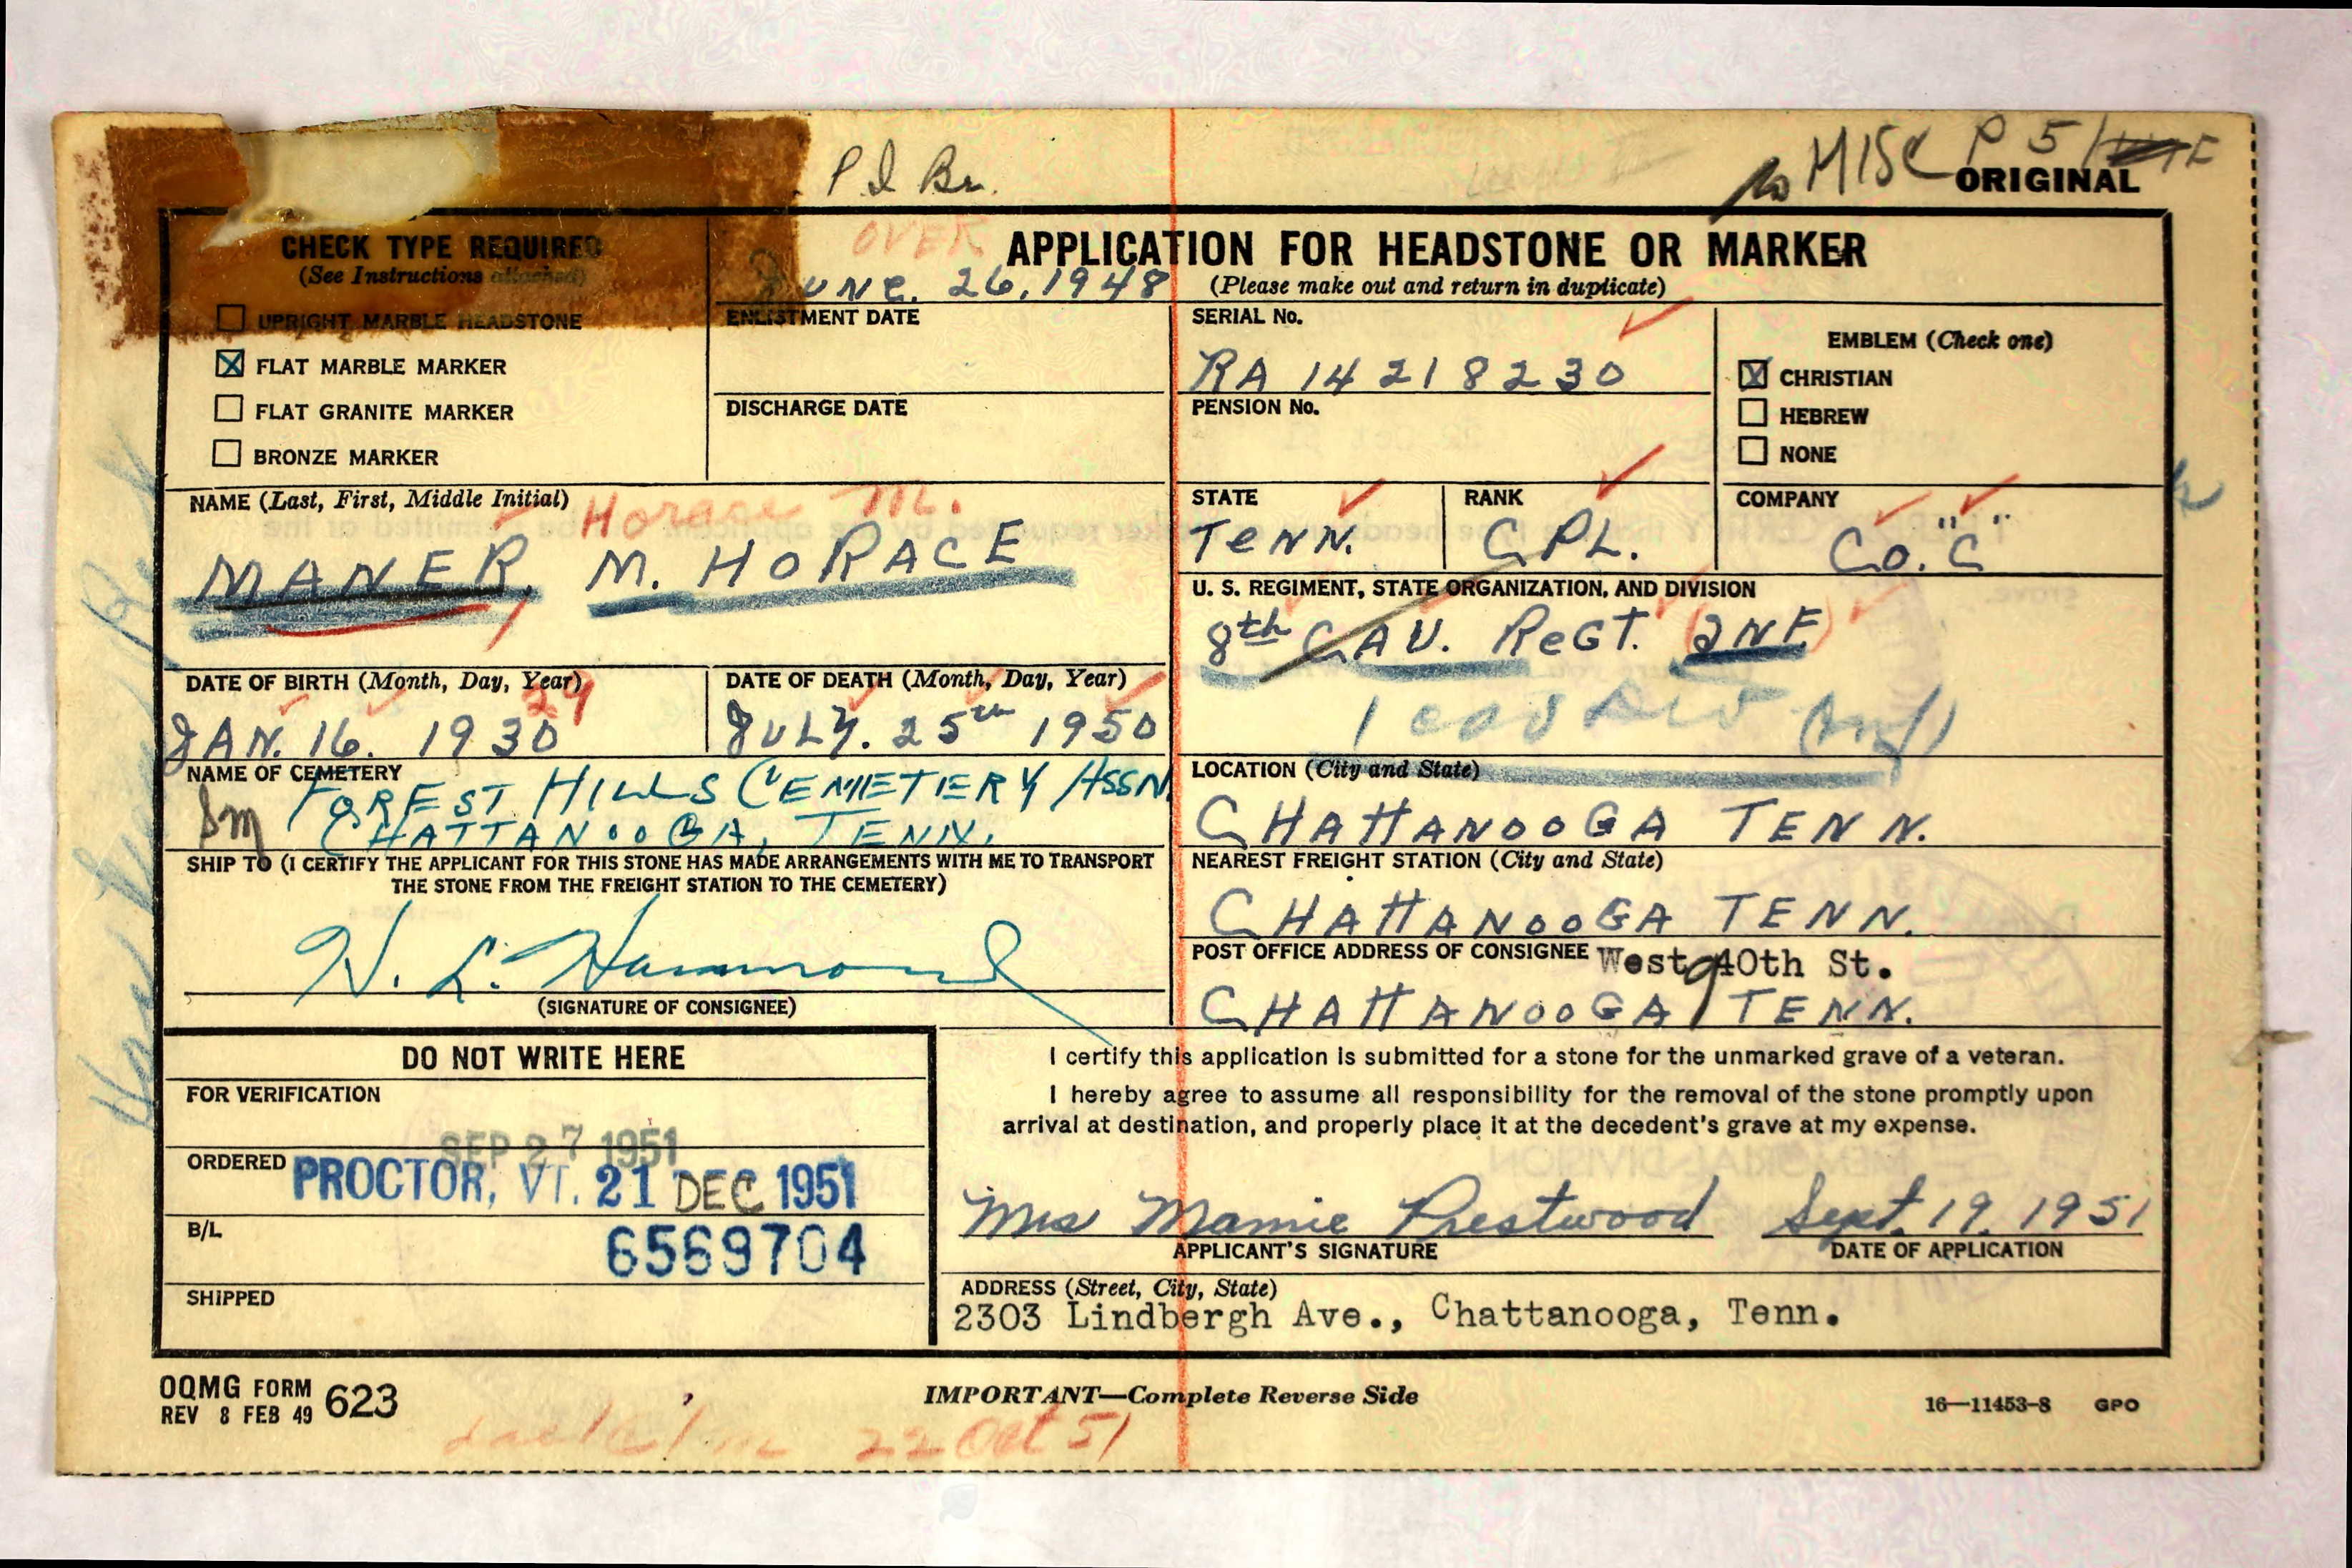 P I Br.
to MISC P 51
ORIGINAL
OVER
CHECK TYPE REQUIRED
(See Instructions attached)
UPRIGHT MARBLE HEADSTONE
☒ FLAT MARBLE MARKER
FLAT GRANITE MARKER
BRONZE MARKER
APPLICATION FOR HEADSTONE OR MARKER
(Please make out and return in duplicate)
June. 26, 1948
ENLISTMENT DATE
DISCHARGE DATE
SERIAL No.
RA 14 218 230
PENSION No.
EMBLEM (Check one)
☒ CHRISTIAN
HEBREW
NONE
NAME (Last, First, Middle Initial)
Horace M.
MANER, M. HORACE
STATE
TENN.
RANK
CPL.
COMPANY
Co. "C"
U. S. REGIMENT, STATE ORGANIZATION, AND DIVISION
8th CAV. REGT. INF.
1 Cav Div (Inf)
DATE OF BIRTH (Month, Day, Year)
29
JAN. 16. 1930
DATE OF DEATH (Month, Day, Year)
JULY. 25th 1950
NAME OF CEMETERY
FOREST HILLS CEMETERY ASSN
Sm CHATTANOOGA, TENN.
LOCATION (City and State)
CHATTANOOGA TENN.
SHIP TO (I CERTIFY THE APPLICANT FOR THIS STONE HAS MADE ARRANGEMENTS WITH ME TO TRANSPORT
THE STONE FROM THE FREIGHT STATION TO THE CEMETERY)
H. L. Hammond
(SIGNATURE OF CONSIGNEE)
NEAREST FREIGHT STATION (City and State)
CHATTANOOGA TENN.
POST OFFICE ADDRESS OF CONSIGNEE West 40th St.
CHATTANOOGA, TENN.
DO NOT WRITE HERE
FOR VERIFICATION
SEP 27 1951
ORDERED PROCTOR, VT. 21 DEC 1951
B/L
6569704
SHIPPED
I certify this application is submitted for a stone for the unmarked grave of a veteran.
I hereby agree to assume all responsibility for the removal of the stone promptly upon
arrival at destination, and properly place it at the decedent's grave at my expense.
Mrs Mamie Prestwood Sept. 19. 1951
APPLICANT'S SIGNATURE DATE OF APPLICATION
ADDRESS (Street, City, State)
2303 Lindbergh Ave., Chattanooga, Tenn.
OQMG FORM 623
REV 8 FEB 49
IMPORTANT—Complete Reverse Side
16—11453-8 GPO
22 Oct 51